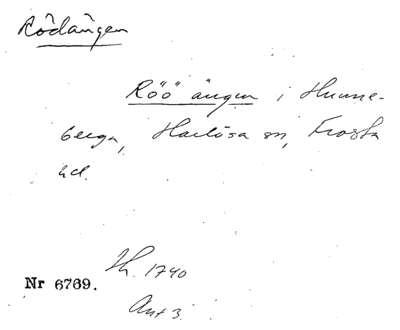 Rödängen
Röö ängen i Hunne-
berga, Harlösa sn, Frosta
hd.
Lh. 1740
Nr 6769.
Ant 3.